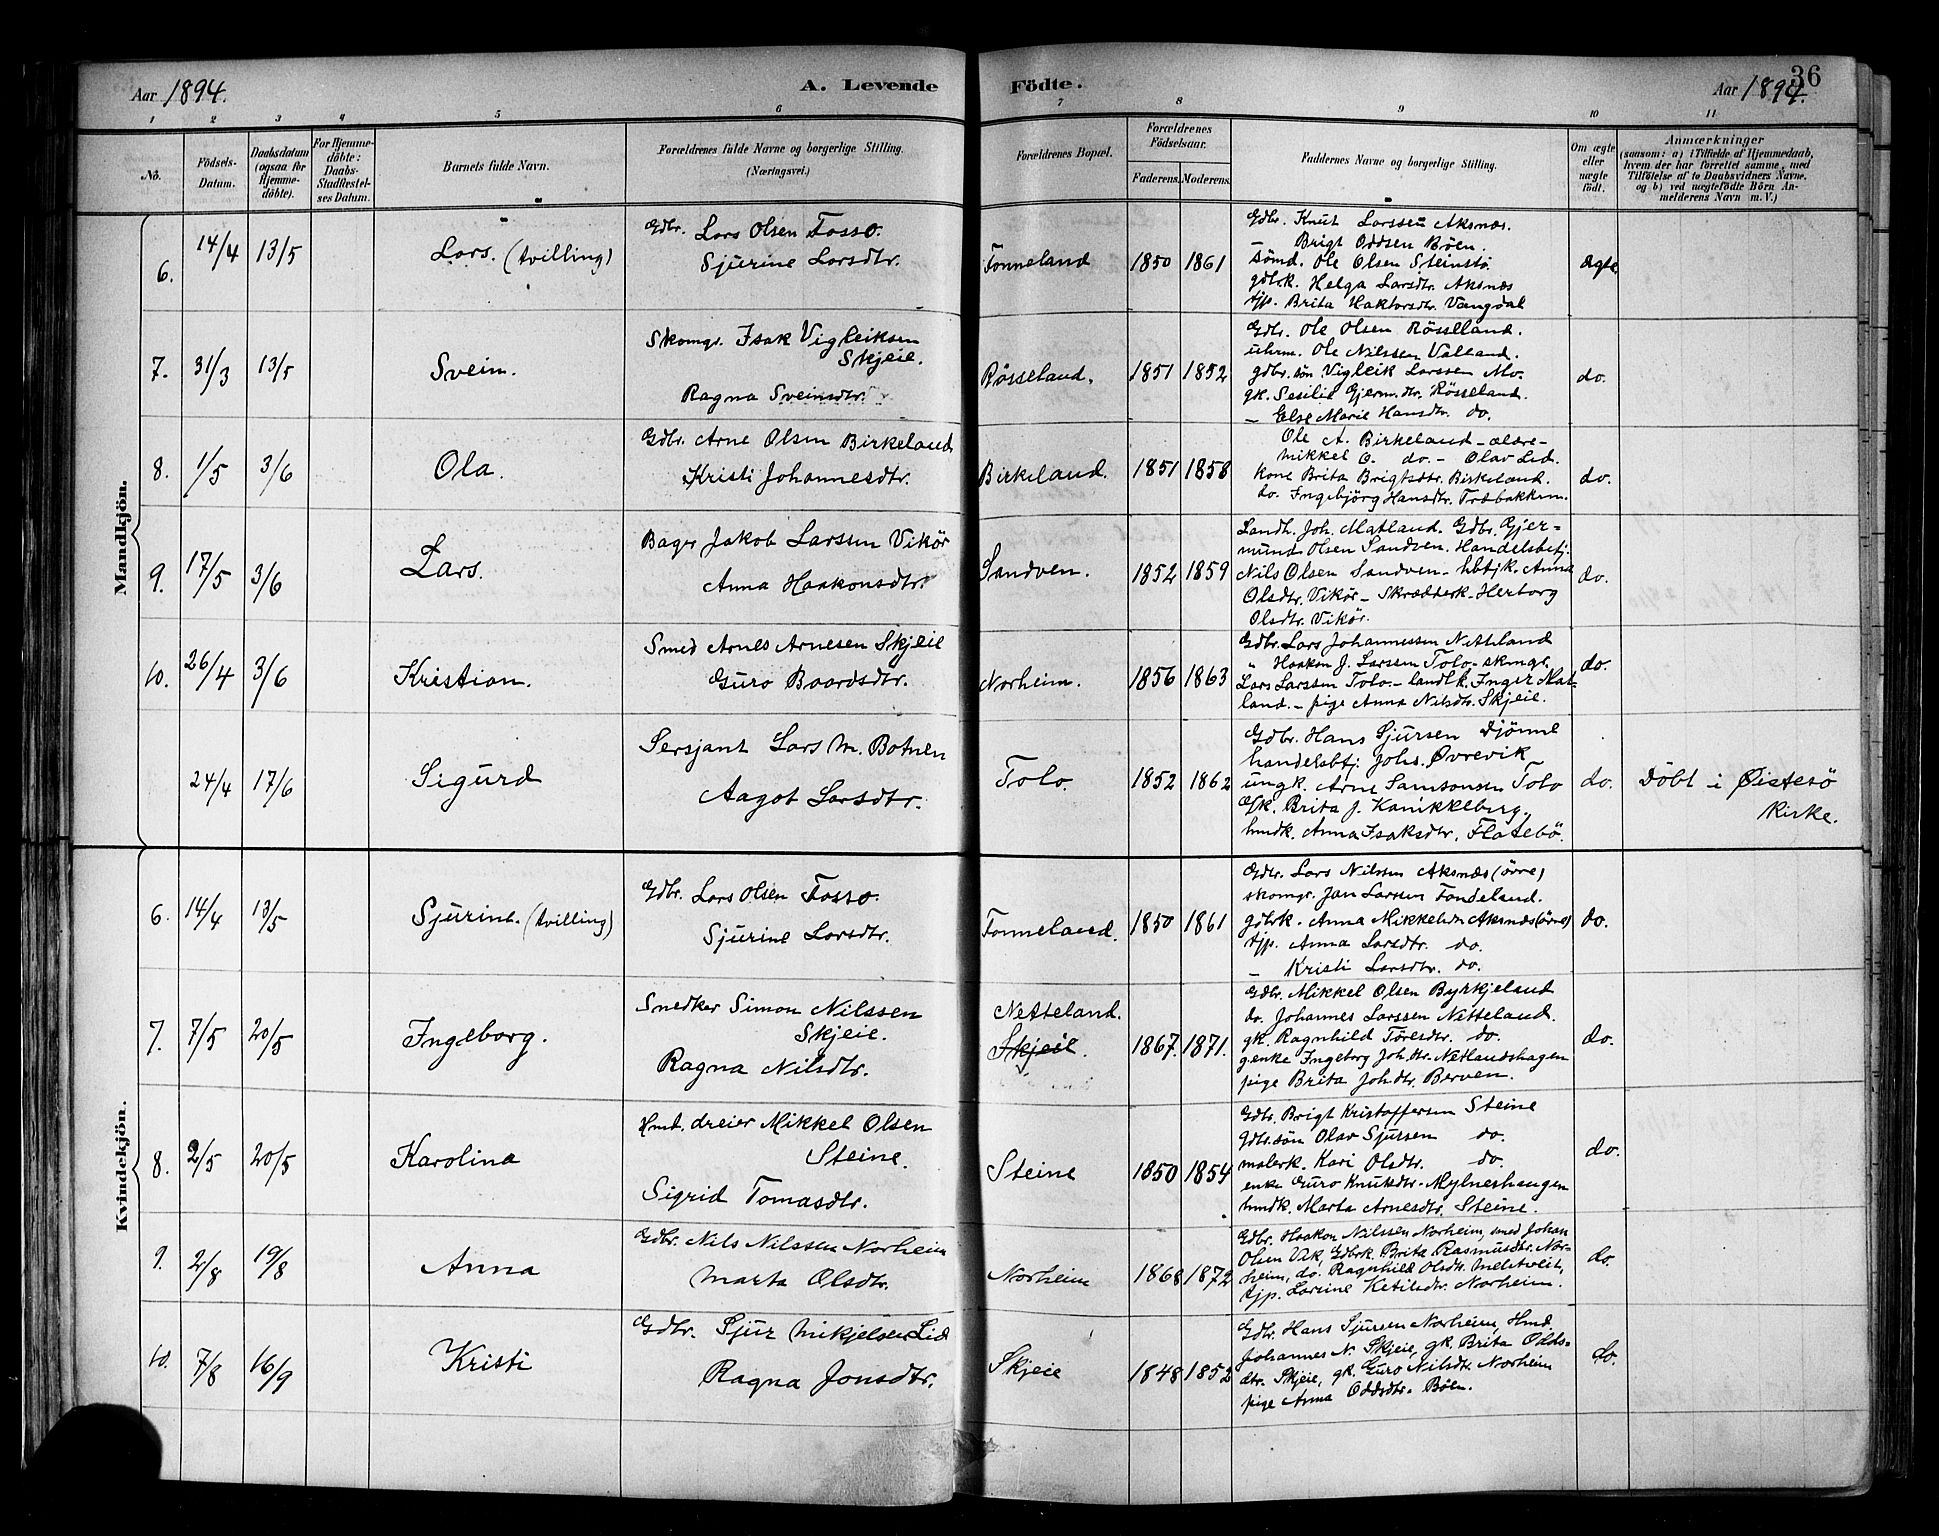 Aar 1894.
A. Levende Födte.
Aar 1894.
36
1 2 3 4 5 6 7 8 9 10 11
No.
Födsels-Datum.
Daabsdatum (ogsaa for Hjemmedöbte).
For Hjemmedöbte: Daabs-Stadfæstelses Datum.
Barnets fulde Navn.
Forældrenes fulde Navne og borgerlige Stilling.
(Næringsvei.)
Forældrenes Bopæl.
Forældrenes Födselsaar.
Faderens. Moderens.
Faddernes Navne og borgerlige Stilling.
Om ægte eller uægte födt.
Anmærkninger
(saasom: a) i Tilfælde af Hjemmedaab,
hvem der har forrettet samme, med
Tilföielse af to Daabsvidners Navne.
og b) ved uægtefödte Börn An-
melderens Navn m. V.)
Mandkjön.
6. 14/4 13/5 Lars. (tvilling)
Gdbr. Lars Olsen Fosso.
Sjurine Larsdtr.
Tonneland 1850 1861
Gdbr. Knut Larssen Aksnæs.
– Brigt Oddsen Böen.
sömd. Ole Olsen Steinstö.
gdbk. Helga Larsdtr. Aksnæs
tjp. Brita Haktorsdtr. Vangdal
ægte
7. 31/3 13/5 Svein.
Skomgr. Isak Vigleiksen
Skjeie.
Ragna Sveinsdtr.
Rösseland. 1851 1852
Gdbr. Ole Olsen Rösseland.
uhrm. Ole Nilssen Valland.
gdbr. sön Vigleik Larssen Mo.
gk. Sesilie Gjerm.dtr. Rösseland.
– Else Marie Hansdtr. do.
do.
8. 1/5 3/6 Ola.
Gdbr. Arne Olsen Birkeland
Kristi Johannesdtr.
Birkeland. 1851 1858
Ole A. Birkeland – ældre –
Mikkel O. do. – Olav Lid.
kone Brita Brigtsdtr. Birkeland.
do. Ingebjörg Hansdtr. Træbakken.
do.
9. 17/5 3/6 Lars.
Bager Jakob Larssen Vikör
Anna Haakonsdtr.
Sandven. 1852 1859
Landh. Joh. Matland. Gdbr. Gjer-
mund Olsen Sandven. Handelsbetj.
Nils Olsen Sandven – hbtjk. Anna
Olsdtr. Vikör – Skrædderk. Herborg
Olsdtr. Vikör.
do.
10. 26/4 3/6 Kristian.
Smed Arnes Arnesen Skjeie
Guro Baardsdtr.
Norheim. 1856 1863
Gdbr. Lars Johannessen Netteland
" Haakon J. Larssen Tolo – skmgr.
Lars Larssen Tolo. – landlk. Inger Mat-
land. – pige Anna Nilsdtr. Skjeie.
do.
24/4 17/6 Sigurd
Sersjant Lars M. Botnen
Aagot Larsdtr.
Tolo. 1852 1862
Gdbr. Hans Sjursen Djönne
handelsbtj. Johs. Övrevik
ungk. Arne Samsonsen Tolo
Gk. Brita J. Kanikkeberg.
hmdk. Anna Isaksdtr. Flatebö.
do.
Döbt i Øistesö
Kirke.
Kvindekjön.
6. 14/4 13/5 Sjurine. (tvilling)
Gdbr. Lars Olsen Fosso.
Sjurine Larsdtr.
Tonneland. 1850 1861
Gdbr. Lars Nilssen Aksnæs (övre)
skomgr. Jan Larssen Tondeland.
gdbrk. Anna Mikkelsdtr Aksnæs (övre)
tjp. Anna Larsdtr. do.
– Kristi Larsdtr. do.
do.
7. 7/5 20/5 Ingeborg.
Snedker Simon Nilssen
Skjeie.
Ragna Nilsdtr.
Netteland.
Skjeie. 1867. 1871.
Gdbr. Mikkel Olsen Byrkjeland
do. Johannes Larssen Netteland.
gk. Ragnhild Töresdtr. do.
g.enke Ingeborg Joh.dtr. Netlandshagen
pige Brita Joh.dtr. Berven.
do.
8. 2/5 20/5 Karolina
Hmd. dreier Mikkel Olsen
Steine.
Sigrid Tomasdtr.
Steine 1850 1854
Gdbr. Brigt Kristoffersen Steine
Gdbr.sön Olav Sjursen do.
malerk. Kari Olsdtr. do.
enke Guro Knutsdtr. Mylneshaugen
hmdk. Marta Arnesdtr. Steine.
do.
9. 2/8 19/8 Anna
Gdbr. Nils Nilssen Norheim
Marta Olsdtr.
Norheim 1868 1872
Gdbr. Haakon Nilssen Norheim, smed Johan
Olsen Vik, Gdbrk. Brita Rasmusdtr. Nor-
heim, do. Ragnhild Olsdtr. Meltveit,
tjp. Larsine Ketilsdtr. Norheim.
do.
10. 7/8 16/9 Kristi
Gdbr. Sjur Mikjelsen Lid
Ragna Jonsdtr.
Skjeie 1848 1852
Gdbr. Hans Sjursen Norheim, Hmd.
Johannes N. Skjeie, gk. Brita Odds-
dtr. Skjeie, gk. Guro Nilsdtr. Norheim
pige Anna Oddsdtr. Böen.
do.